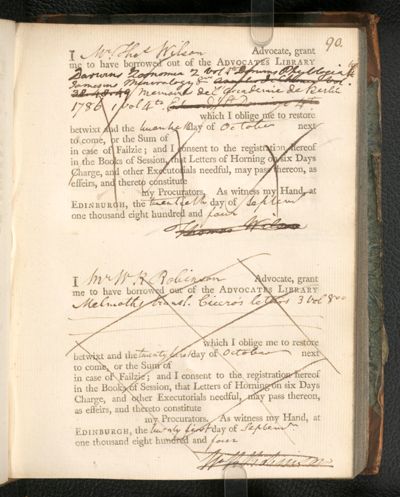 90.
I Mr Thos Wilson Advocate, grant
me to have borrowed out of the ADVOCATES LIBRARY
Darwins Zoonomia 2 vols
Jamesons Mineralogy
Memoires de l'Academie de Berlin
1786 vol 4to
which I oblige me to restore
betwixt and the day of October next
to come, or the Sum of
in case of Failzie; and I consent to the registration hereof
in the Books of Session, that Letters of Horning on six Days
Charge, and other Executorials needful, may pass thereon, as
effeirs, and thereto constitute
my Procurators. As witness my Hand, at
EDINBURGH, the twentieth day of Septemr
one thousand eight hundred and four
Thomas Wilson
I Mr W. R. Robinson Advocate, grant
me to have borrowed out of the ADVOCATES LIBRARY
Melmoths transl. Cicero's letters 3 vol 8vo
which I oblige me to restore
betwixt and the twenty first day of October next
to come, or the Sum of
in case of Failzie; and I consent to the registration hereof
in the Books of Session, that Letters of Horning on six Days
Charge, and other Executorials needful, may pass thereon, as
effeirs, and thereto constitute
my Procurators. As witness my Hand, at
EDINBURGH, the twenty first day of Septemr
one thousand eight hundred and four